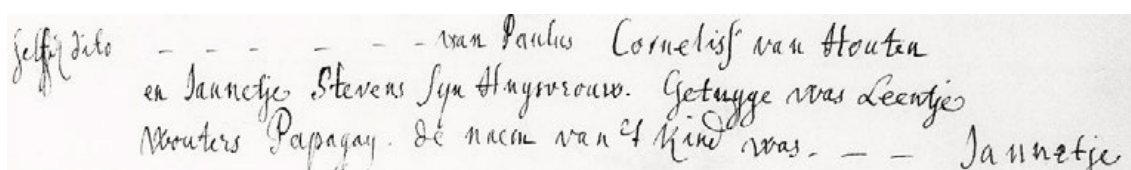 selfde dito _ _ _ _ _ _ van Paulus Cornelisſ van Houten
en Jannetje Stevens Syn Huysvrouw. Getuygge was Leentje
Wouters Papagay. de naem van 't Kind was. _ _ Jannetje